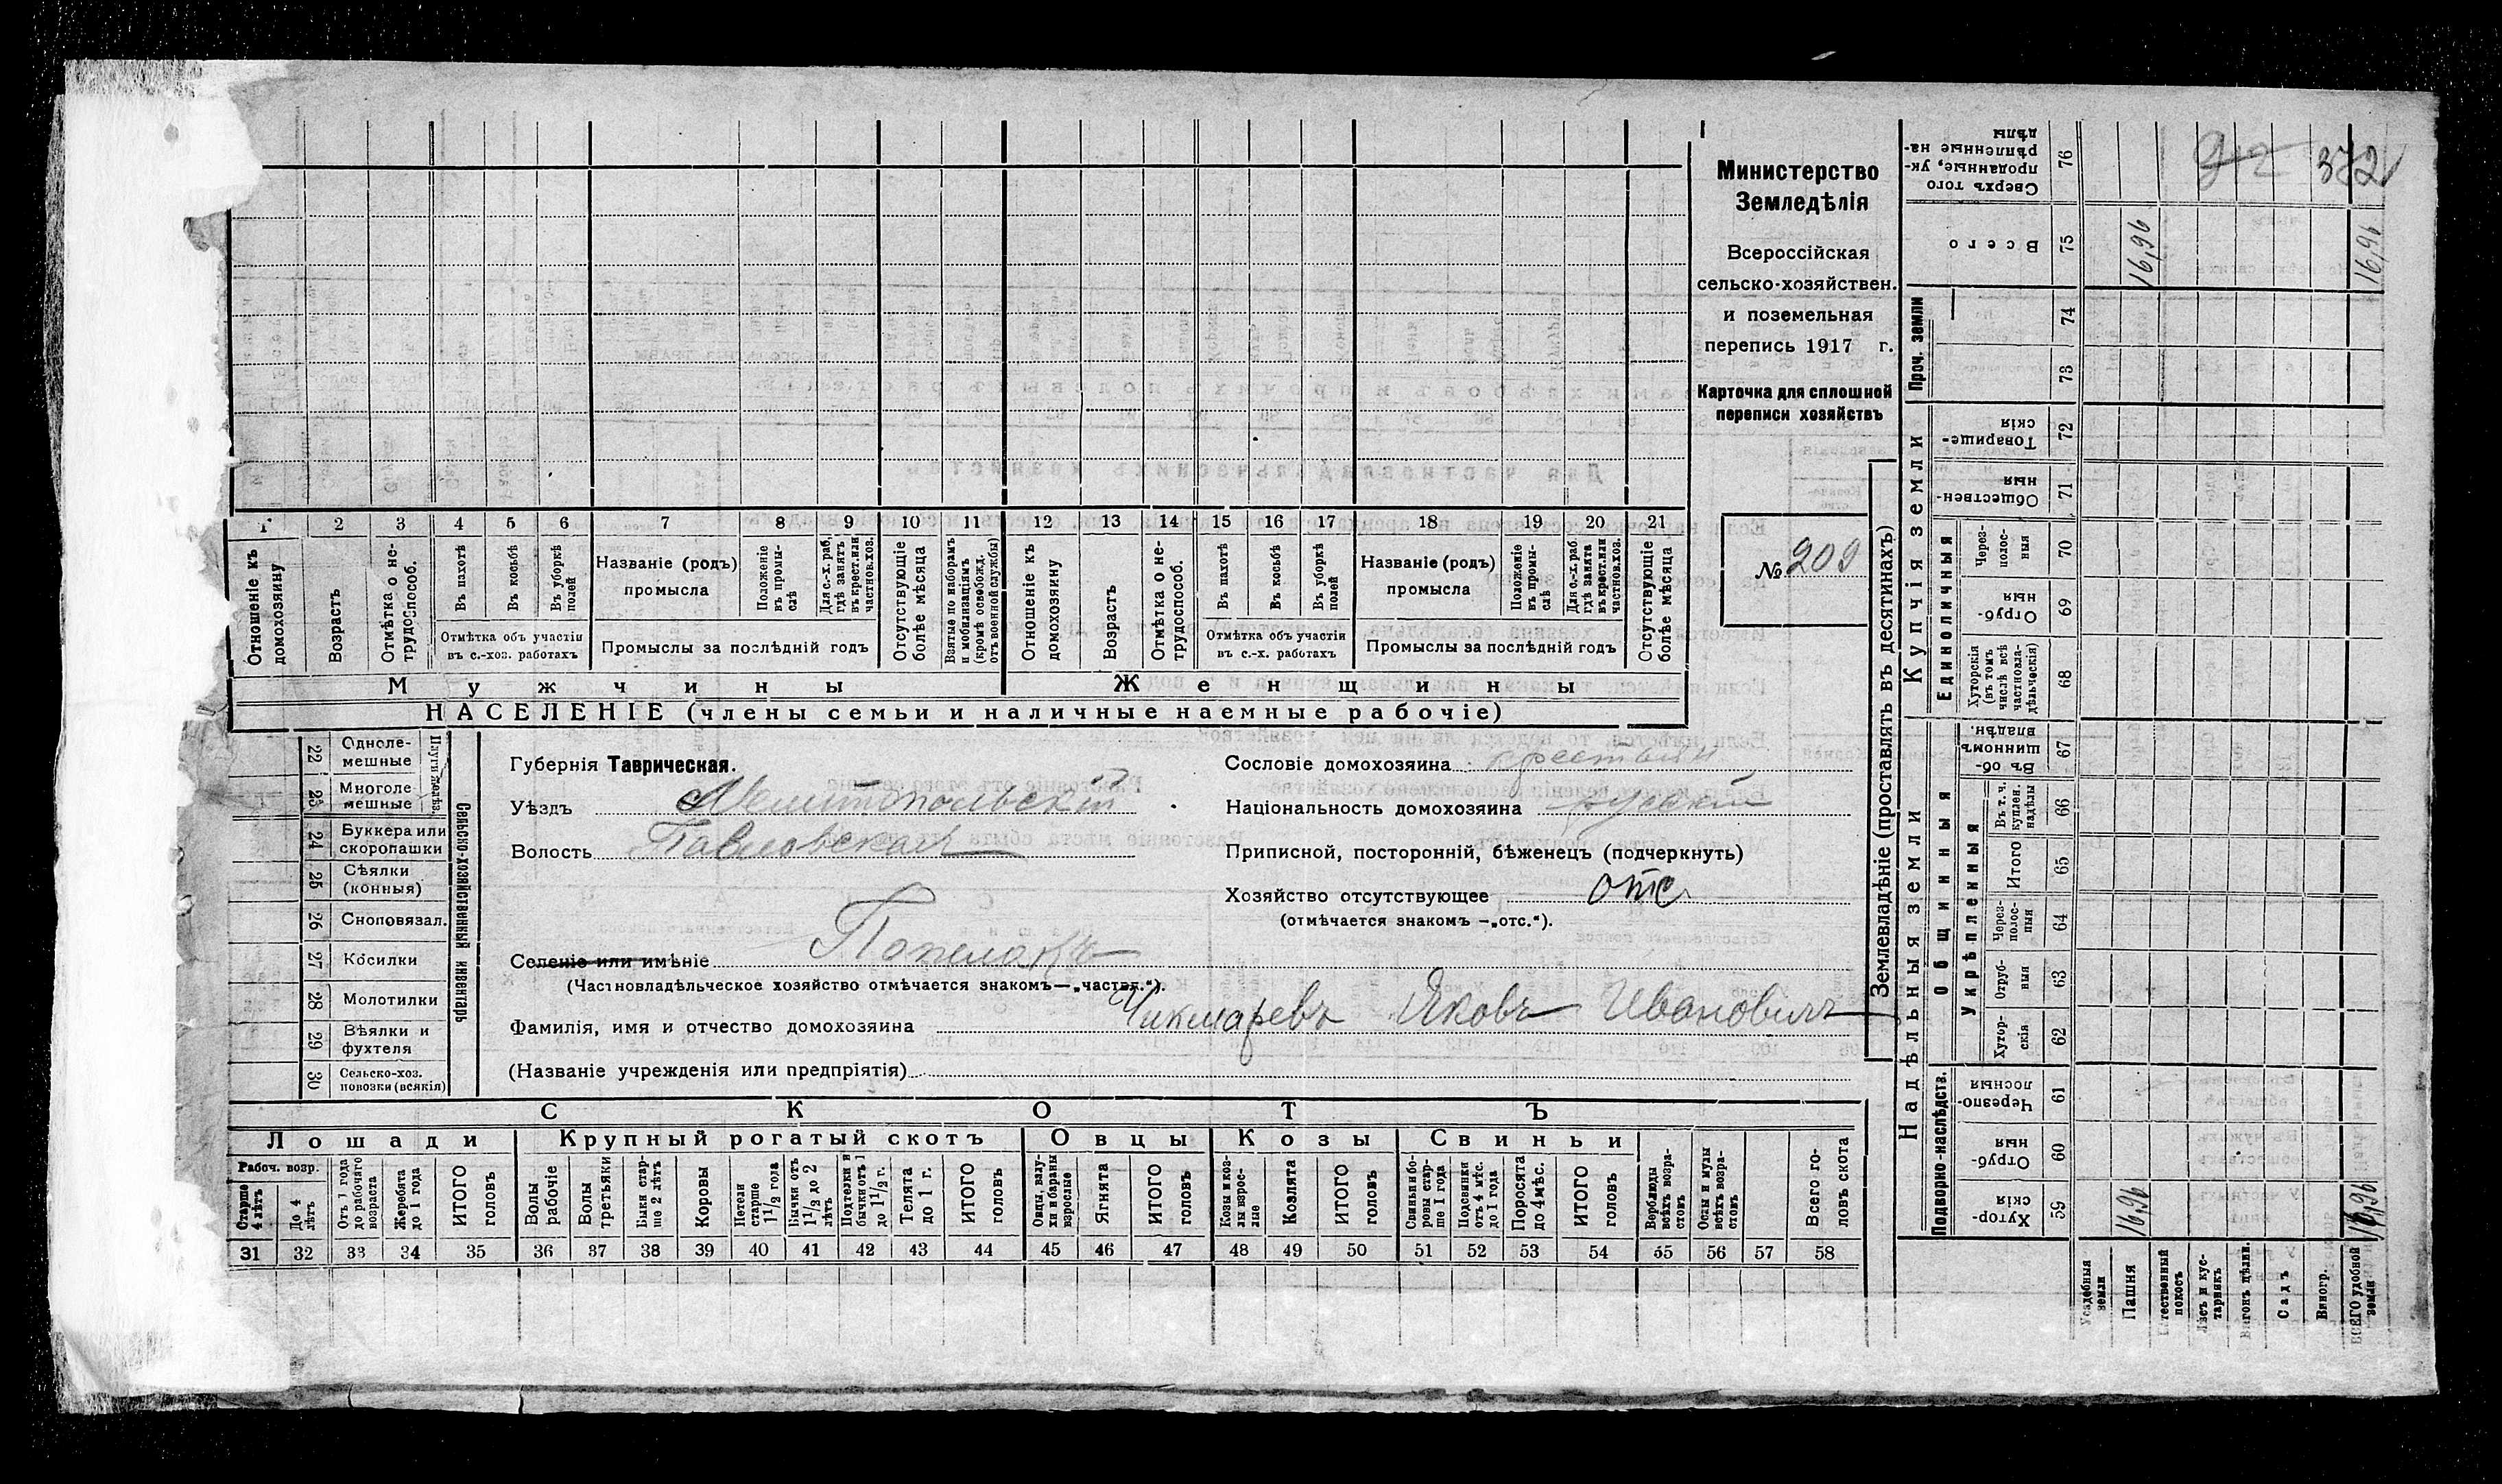 Министерство
Земледѣлія
Всероссійская
сельско-хозяйствен.
и поземельная
перепись 1917 г.
Карточка для сплошной
переписи хозяйствъ
№ 209
1 2 3 4 5 6 7 8 9 10 11 12 13 14 15 16 17 18 19 20 21
Отношеніе къ домохозяину
Возрастъ
Отмѣтка о не-трудоспособ.
Въ пахотѣ
Въ косьбѣ
Въ уборкѣ полей
Отмѣтка объ участіи
въ с.-хоз. работахъ
Названіе (родъ)
промысла
Положеніе въ промы-слѣ
Для с.-х. раб. гдѣ занятъ въ крест. или частнов. хоз.
Промыслы за послѣдній годъ
Отсутствующіе болѣе мѣсяца
Взятые по наборамъ и мобилизаціямъ (кромѣ освобожд. отъ военной службы)
Отношеніе къ домохозяину
Возрастъ
Отмѣтка о не-трудоспособ.
Въ пахотѣ
Въ косьбѣ
Въ уборкѣ полей
Отмѣтка объ участіи
въ с.-х. работахъ
Названіе (родъ)
промысла
Положеніе въ промы-слѣ
Для с.-х. раб. гдѣ занята въ крест. или частнов. хоз.
Промыслы за послѣдній годъ
Отсутствующіе болѣе мѣсяца
Мужчины Женщины
НАСЕЛЕНІЕ (члены семьи и наличные наемные рабочіе)
Сельско-хозяйственный инвентарь
22 Одноле-мешные
23 Многоле мешные
24 Буккера или скоропашки
25 Сѣялки (конныя)
26 Сноповязал.
27 Косилки
28 Молотилки
29 Вѣялки и фухтеля
30 Сельско-хоз. повозки (всякія)
Губернія Таврическая.
Уѣздъ Мелитопольскій
Волость Павловская
Селеніе или имѣніе
(Частновладѣльческое хозяйство отмѣчается знакомъ—„частвл.“).
Фамилія, имя и отчество домохозяина Чикмаревъ Яковъ Ивановичъ
(Названіе учрежденія или предпріятія)
Сословіе домохозяина крестьян
Національность домохозяина русскій
Приписной, посторонній, бѣженецъ (подчеркнуть)
Хозяйство отсутствующее отс
(отмѣчается знакомъ —„отс.“).
СКОТЪ
Лошади Крупный рогатый скотъ Овцы Козы Свиньи
Рабоч. возр.
Старше 4 лѣтъ
До 4 лѣтъ
Отъ 1 года до рабочаго возраста
Жеребята до 1 года
ИТОГО головъ
Волы рабочіе
Волы третьяки
Быки стар-ше 2 лѣтъ
Коровы
Нетели старше 1½ года
Бычки отъ 1½ до 2 лѣтъ
Подтелки и бычки отъ 1 до 1½ г.
Телята до 1 г.
ИТОГО головъ
Овцы, валу-хи и бараны взрослые
Ягнята
ИТОГО головъ
Козы и коз-лы взрос-лые
Козлята
ИТОГО головъ
Свиньи и бо-ровы стар-ше 1 года
Подсвинки отъ 4 мѣс. до 1 года
Поросята до 4 мѣс.
ИТОГО головъ
Верблюды всѣхъ возра-стовъ
Ослы и мулы всѣхъ возра-стовъ
Всего го-ловъ скота
31 32 33 34 35 36 37 38 39 40 41 42 43 44 45 46 47 48 49 50 51 52 53 54 55 56 57 58
Землевладѣніе (проставлять въ десятинахъ)
Надѣльныя земли Купчія земли Проч. земли
Подворно-наслѣдств.
Общинныя
Укрѣпленныя
Единоличныя
Хутор-скія 59
Отруб-ныя 60
Черезпо-лосныя 61
Хутор-скія 62
Отруб-ныя 63
Через-полос-ныя 64
Итого 65
Въ т. ч. куплен. надѣлы 66
Въ об-щинномъ владѣн. 67
Хуторскія (въ томъ числѣ всѣ частновла-дѣльческія) 68
Отруб-ныя 69
Через-полос-ныя 70
Обществен-ныя 71
Товарище-скія 72
73
74
Всего 75
Сверхъ того проданные, ук-рѣпленные на-дѣлы 76
Усадебныя земли
Пашня 16,96 16,96
Естественный покосъ
Лѣсъ и кус-тарникъ
Выгонъ цѣлин.
Садъ
Виногр.
ВСЕГО удобной земли 16,96 16,96
372